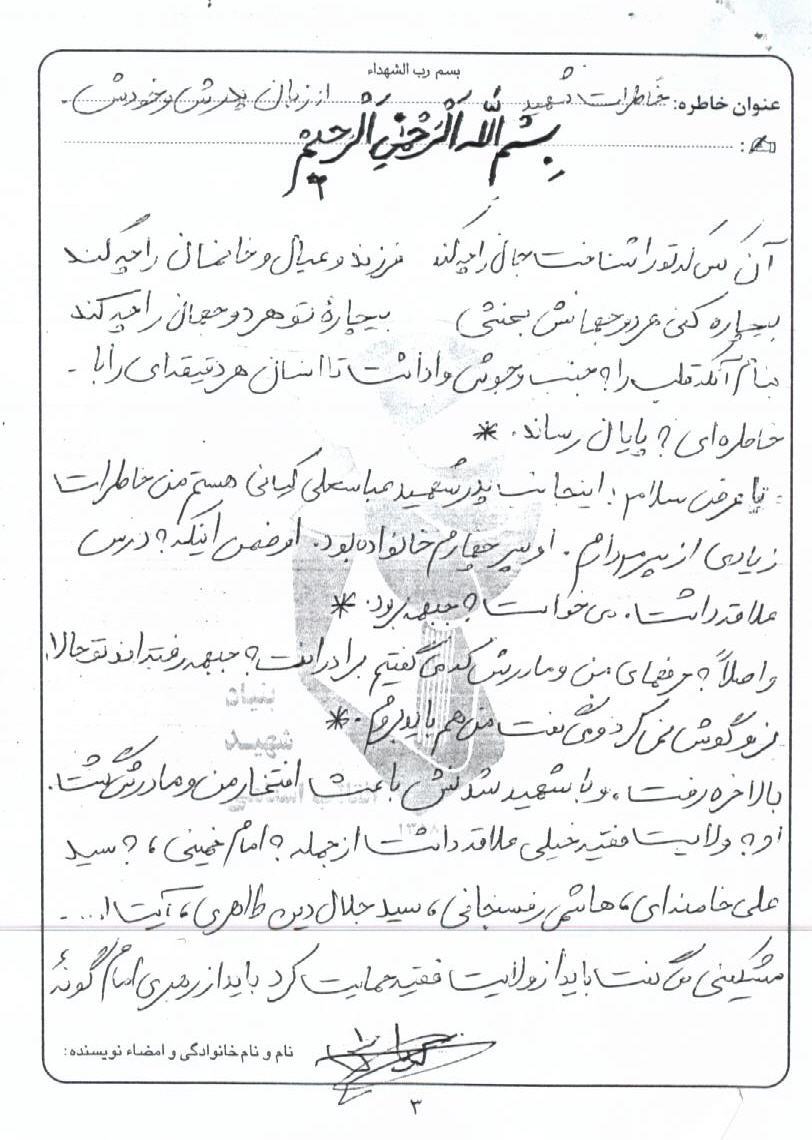 بسم رب الشهداء
عنوان خاطره: خاطرات شهید از زبان پدرش و خودش.
بسم الله الرحمن الرحیم
آن کس که تو را شناخت جان را چه کند فرزند و عیال و خانمان را چه کند
بیچاره کنی هر دو جهانش بخشی بیچارهٔ تو هر دو جهان را چه کند
بنام آنکه قلب را به جنب و جوش واداشت تا انسان هر دقیقه‌ای را با -
خاطره‌ای به پایان رساند. *
با عرض سلام: اینجانب پدر شهید عباسعلی کیانی هستم من خاطرات
زیادی از پسرم دارم. او پسر چهارم خانواده بود. او ضمن اینکه به درس
علاقه داشت. می‌خواست به جبهه برود. *
و اصلاً به حرفهای من و مادرش که می‌گفتیم برادرانت به جبهه رفته‌اند تو حالا
نرو گوش نمی‌کرد و می‌گفت من هم باید بروم. *
بالاخره رفت، و با شهید شدنش باعث افتخار من و مادرش گشت.
او به ولایت فقیه خیلی علاقه داشت از جمله به امام خمینی، به سید
علی خامنه‌ای، هاشمی رفسنجانی، سید جلال دین طاهری، آیت ا... -
مشکینی می‌گفت باید از ولایت فقیه حمایت کرد باید از رهبری امام گونهٔ
نام و نام خانوادگی و امضاء نویسنده:
۳